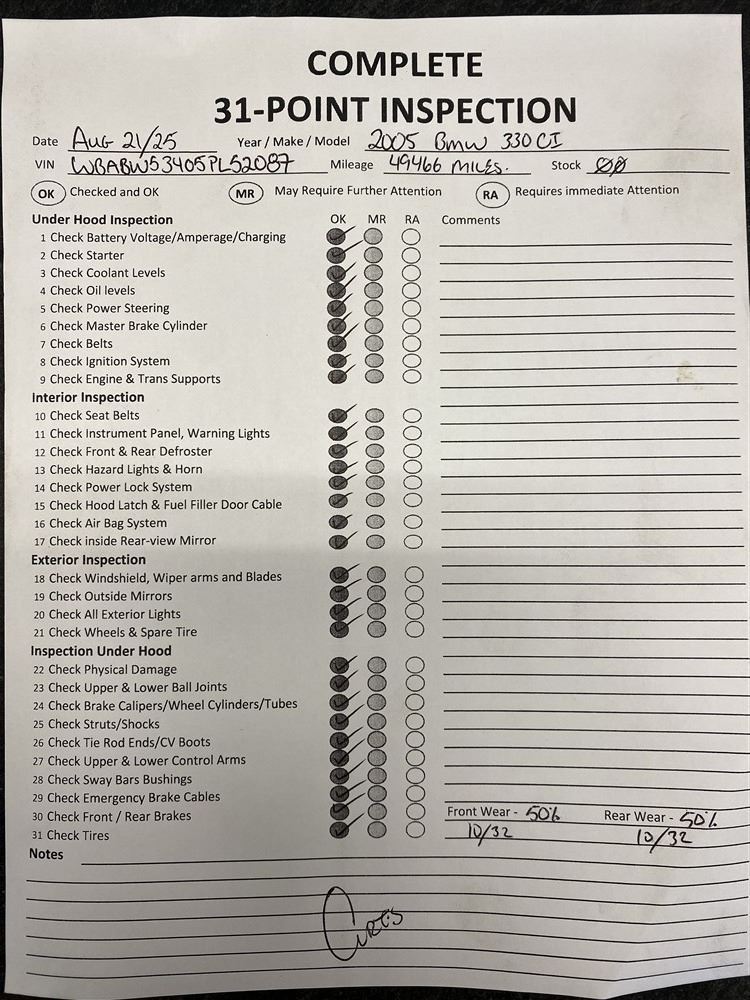 COMPLETE
31-POINT INSPECTION
Date Aug 21/25 Year / Make / Model 2005 BMW 330 CI
VIN WBABW53405PL52087 Mileage 49466 MILES. Stock ØØ
OK Checked and OK MR May Require Further Attention RA Requires immediate Attention
Under Hood Inspection OK MR RA Comments
1 Check Battery Voltage/Amperage/Charging
2 Check Starter
3 Check Coolant Levels
4 Check Oil levels
5 Check Power Steering
6 Check Master Brake Cylinder
7 Check Belts
8 Check Ignition System
9 Check Engine & Trans Supports
Interior Inspection
10 Check Seat Belts
11 Check Instrument Panel, Warning Lights
12 Check Front & Rear Defroster
13 Check Hazard Lights & Horn
14 Check Power Lock System
15 Check Hood Latch & Fuel Filler Door Cable
16 Check Air Bag System
17 Check inside Rear-view Mirror
Exterior Inspection
18 Check Windshield, Wiper arms and Blades
19 Check Outside Mirrors
20 Check All Exterior Lights
21 Check Wheels & Spare Tire
Inspection Under Hood
22 Check Physical Damage
23 Check Upper & Lower Ball Joints
24 Check Brake Calipers/Wheel Cylinders/Tubes
25 Check Struts/Shocks
26 Check Tie Rod Ends/CV Boots
27 Check Upper & Lower Control Arms
28 Check Sway Bars Bushings
29 Check Emergency Brake Cables
30 Check Front / Rear Brakes Front Wear - 50% Rear Wear - 50%
31 Check Tires 10/32 10/32
Notes
Curtis